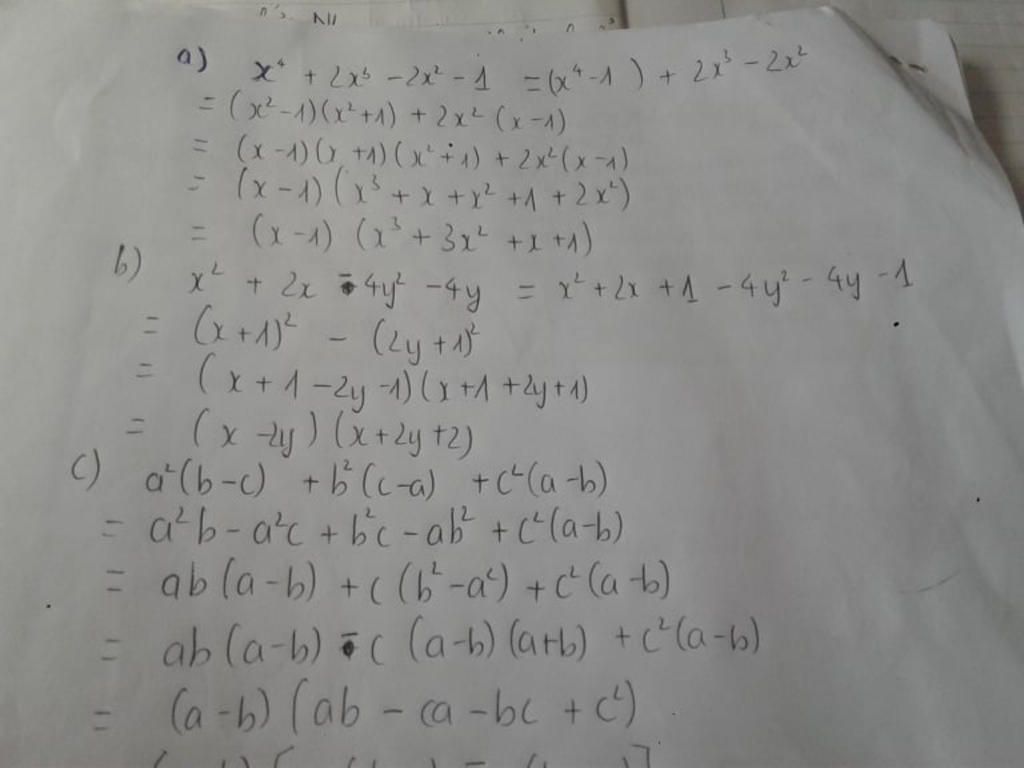 a) x⁴ + 2x³ - 2x² - 1 = (x⁴ - 1) + 2x³ - 2x²
= (x² - 1)(x² + 1) + 2x² (x - 1)
= (x - 1)(x + 1)(x² + 1) + 2x² (x - 1)
= (x - 1)(x³ + x + x² + 1 + 2x²)
= (x - 1) (x³ + 3x² + x + 1)
b) x² + 2x - 4y² - 4y = x² + 2x + 1 - 4y² - 4y - 1
= (x + 1)² - (2y + 1)²
= (x + 1 - 2y - 1)(x + 1 + 2y + 1)
= (x - 2y)(x + 2y + 2)
c) a²(b - c) + b²(c - a) + c²(a - b)
= a²b - a²c + b²c - ab² + c²(a - b)
= ab(a - b) + c(b² - a²) + c²(a - b)
= ab(a - b) - c(a - b)(a + b) + c²(a - b)
= (a - b)(ab - ca - bc + c²)